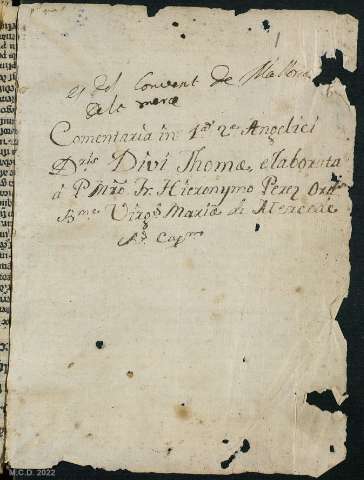 es del Convent de Mallorca
de la merce
Comentaria in 1ᵃᵐ 2ᵃᵉ Angelici
Dris Divi Thomæ, elaborata
á P. Mro. Fr. Hieronymo Perez Ord.
Bmæ Virgs. Mariæ de Mercede
M.C.D. 2022